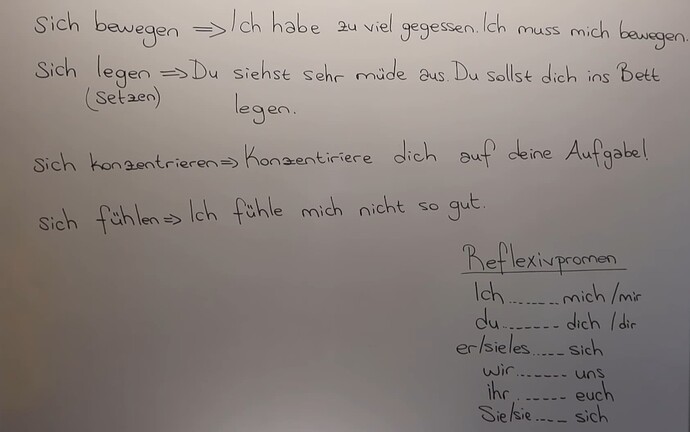 Sich bewegen ⇒ Ich habe zu viel gegessen. Ich muss mich bewegen.
Sich legen ⇒ Du siehst sehr müde aus. Du sollst dich ins Bett
(setzen) legen.
Sich konzentrieren ⇒ Konzentiriere dich auf deine Aufgabe!
Sich fühlen ⇒ Ich fühle mich nicht so gut.
Reflexivpromen
Ich ....... mich /mir
du ....... dich /dir
er/sie/es ..... sich
wir ....... uns
ihr ...... euch
Sie/sie .... sich